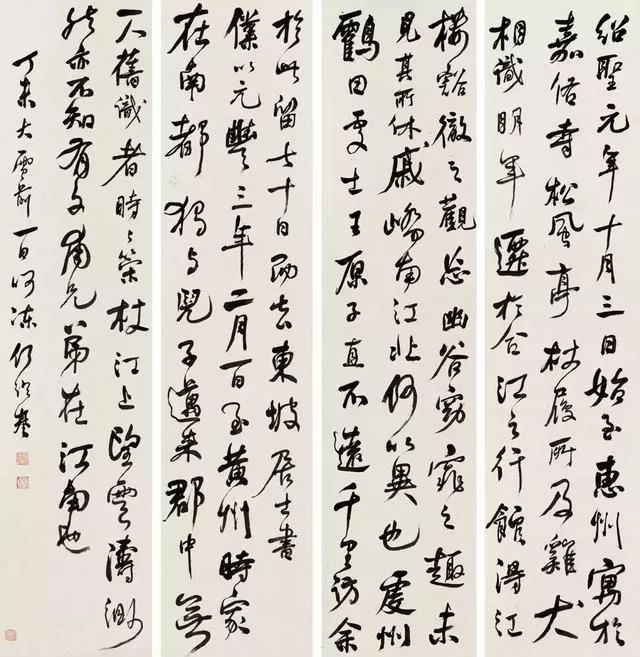 紹聖元年十月三日始至惠州寓於
嘉佑寺松風亭杖履所及雞犬
相識明年遷於合江之行館得江
樓豁徹之觀忘幽谷窈窕之趣未
見其所休戚嶠南江北何以異也虔州
鶴田處士王原子直不遠千里訪余
於此留七十日而去東坡居士書
僕以元豐三年二月一日至黃州時家
在南都獨與兒子邁來郡中無
一人舊識者時〻策杖江上望雲濤渺
然亦不知有文甫兄弟在江南也
丁未大雪前一日呵凍何紹基